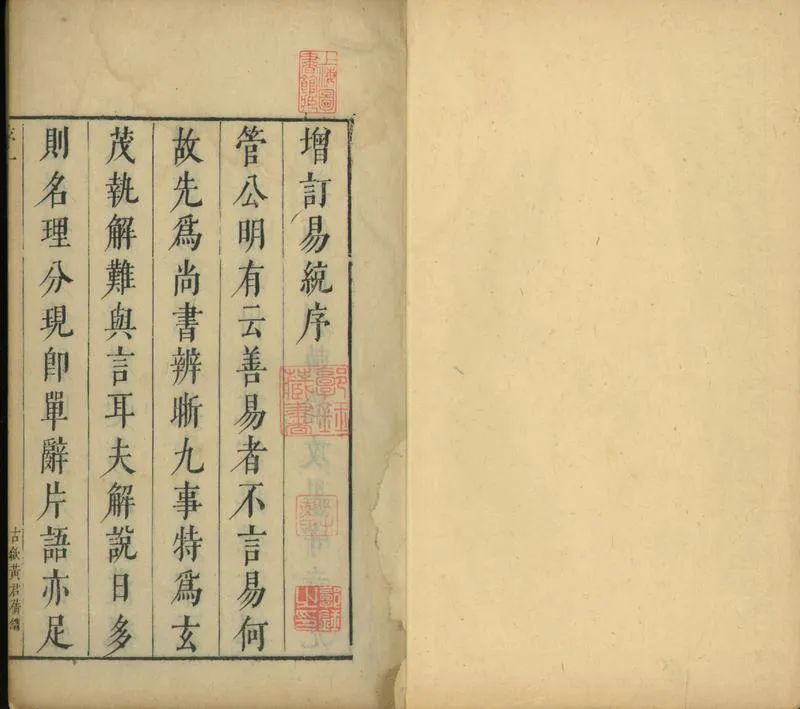 增訂易統序
管公明有云善易者不言易何
故先爲尚書辨晣九事特爲玄
茂執解難與言耳夫解說日多
則名理分現卽單辭片語亦足
古歙黃君蒨鐫
上海圖書館藏